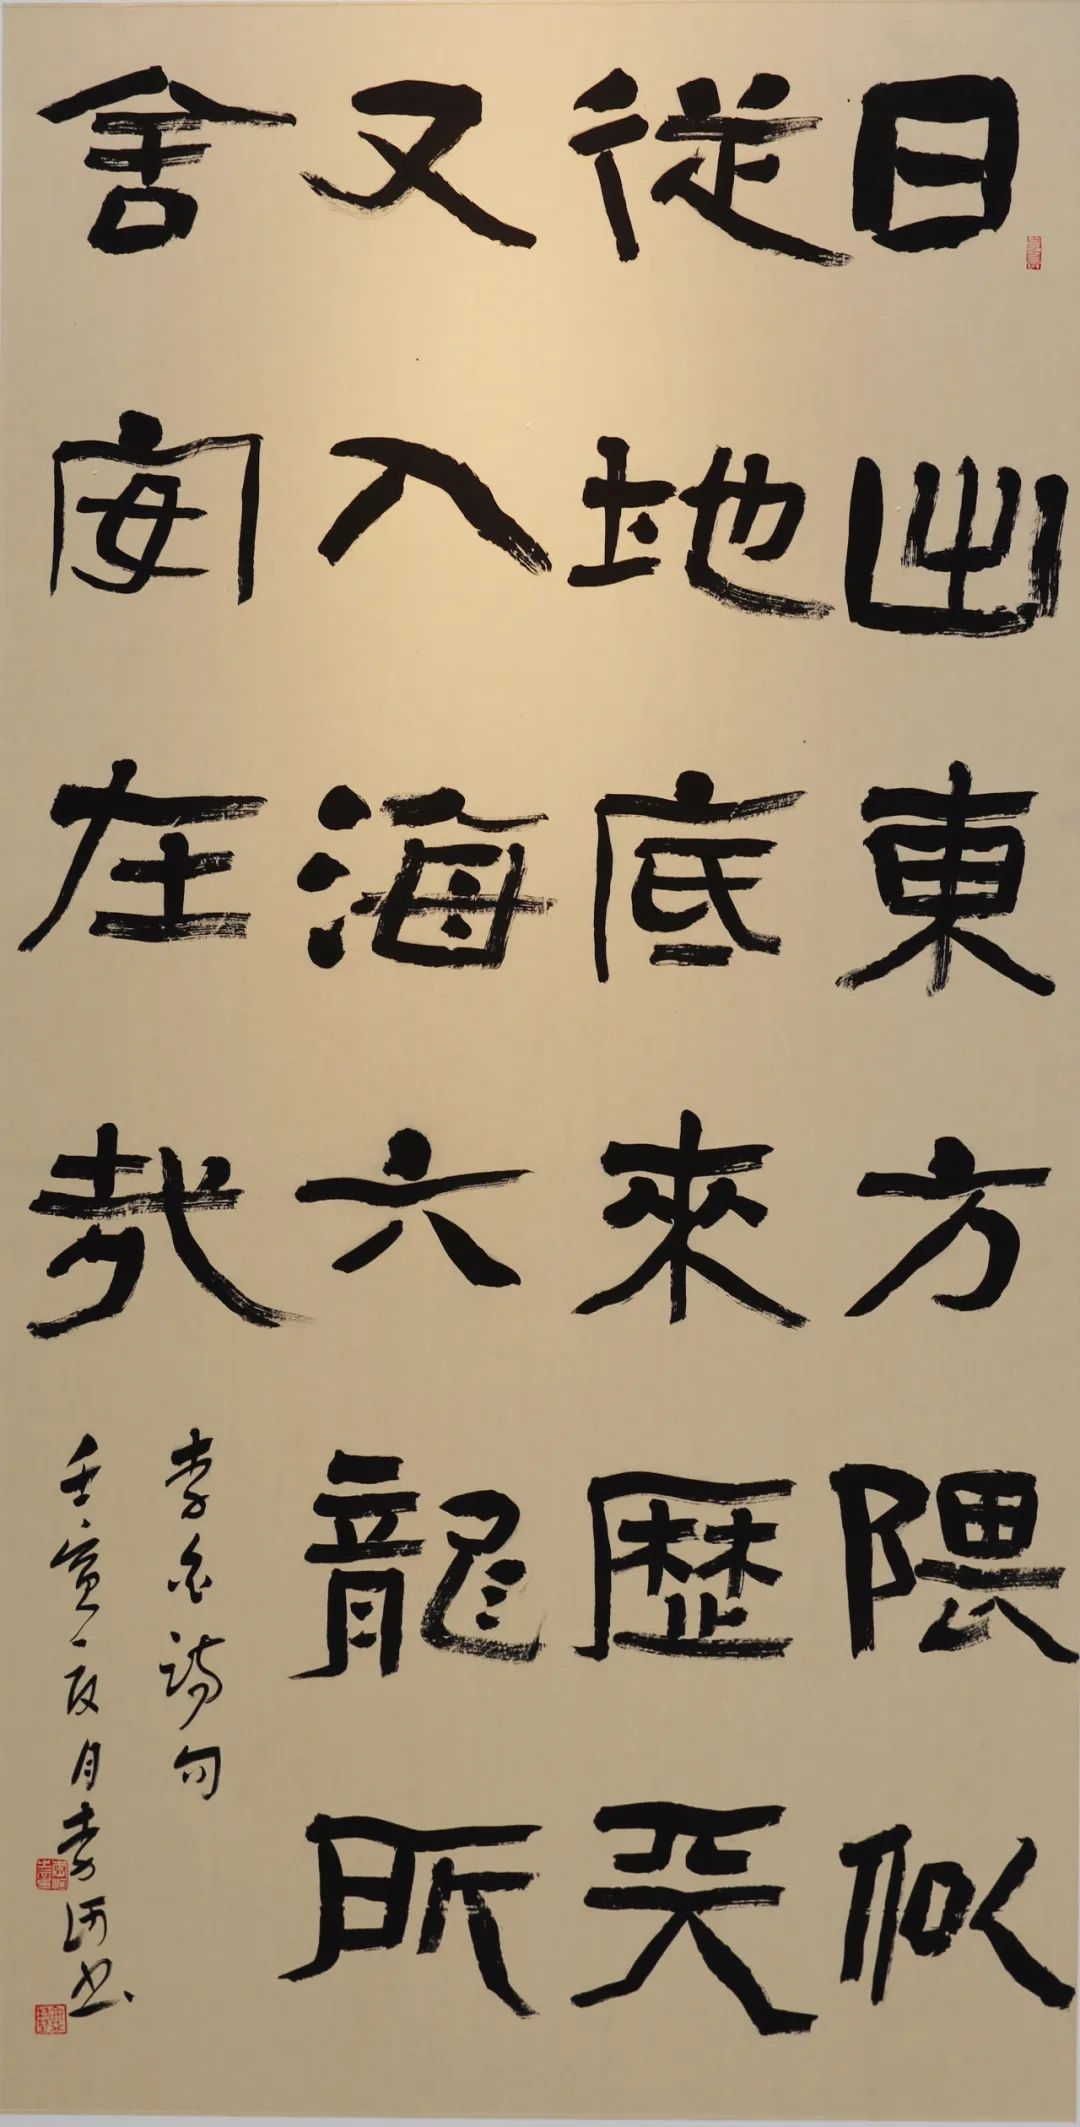 日出東方隈似
從地底來歷天
又入海六龍所
舍安在哉
李白詩句
壬寅夏月李河书